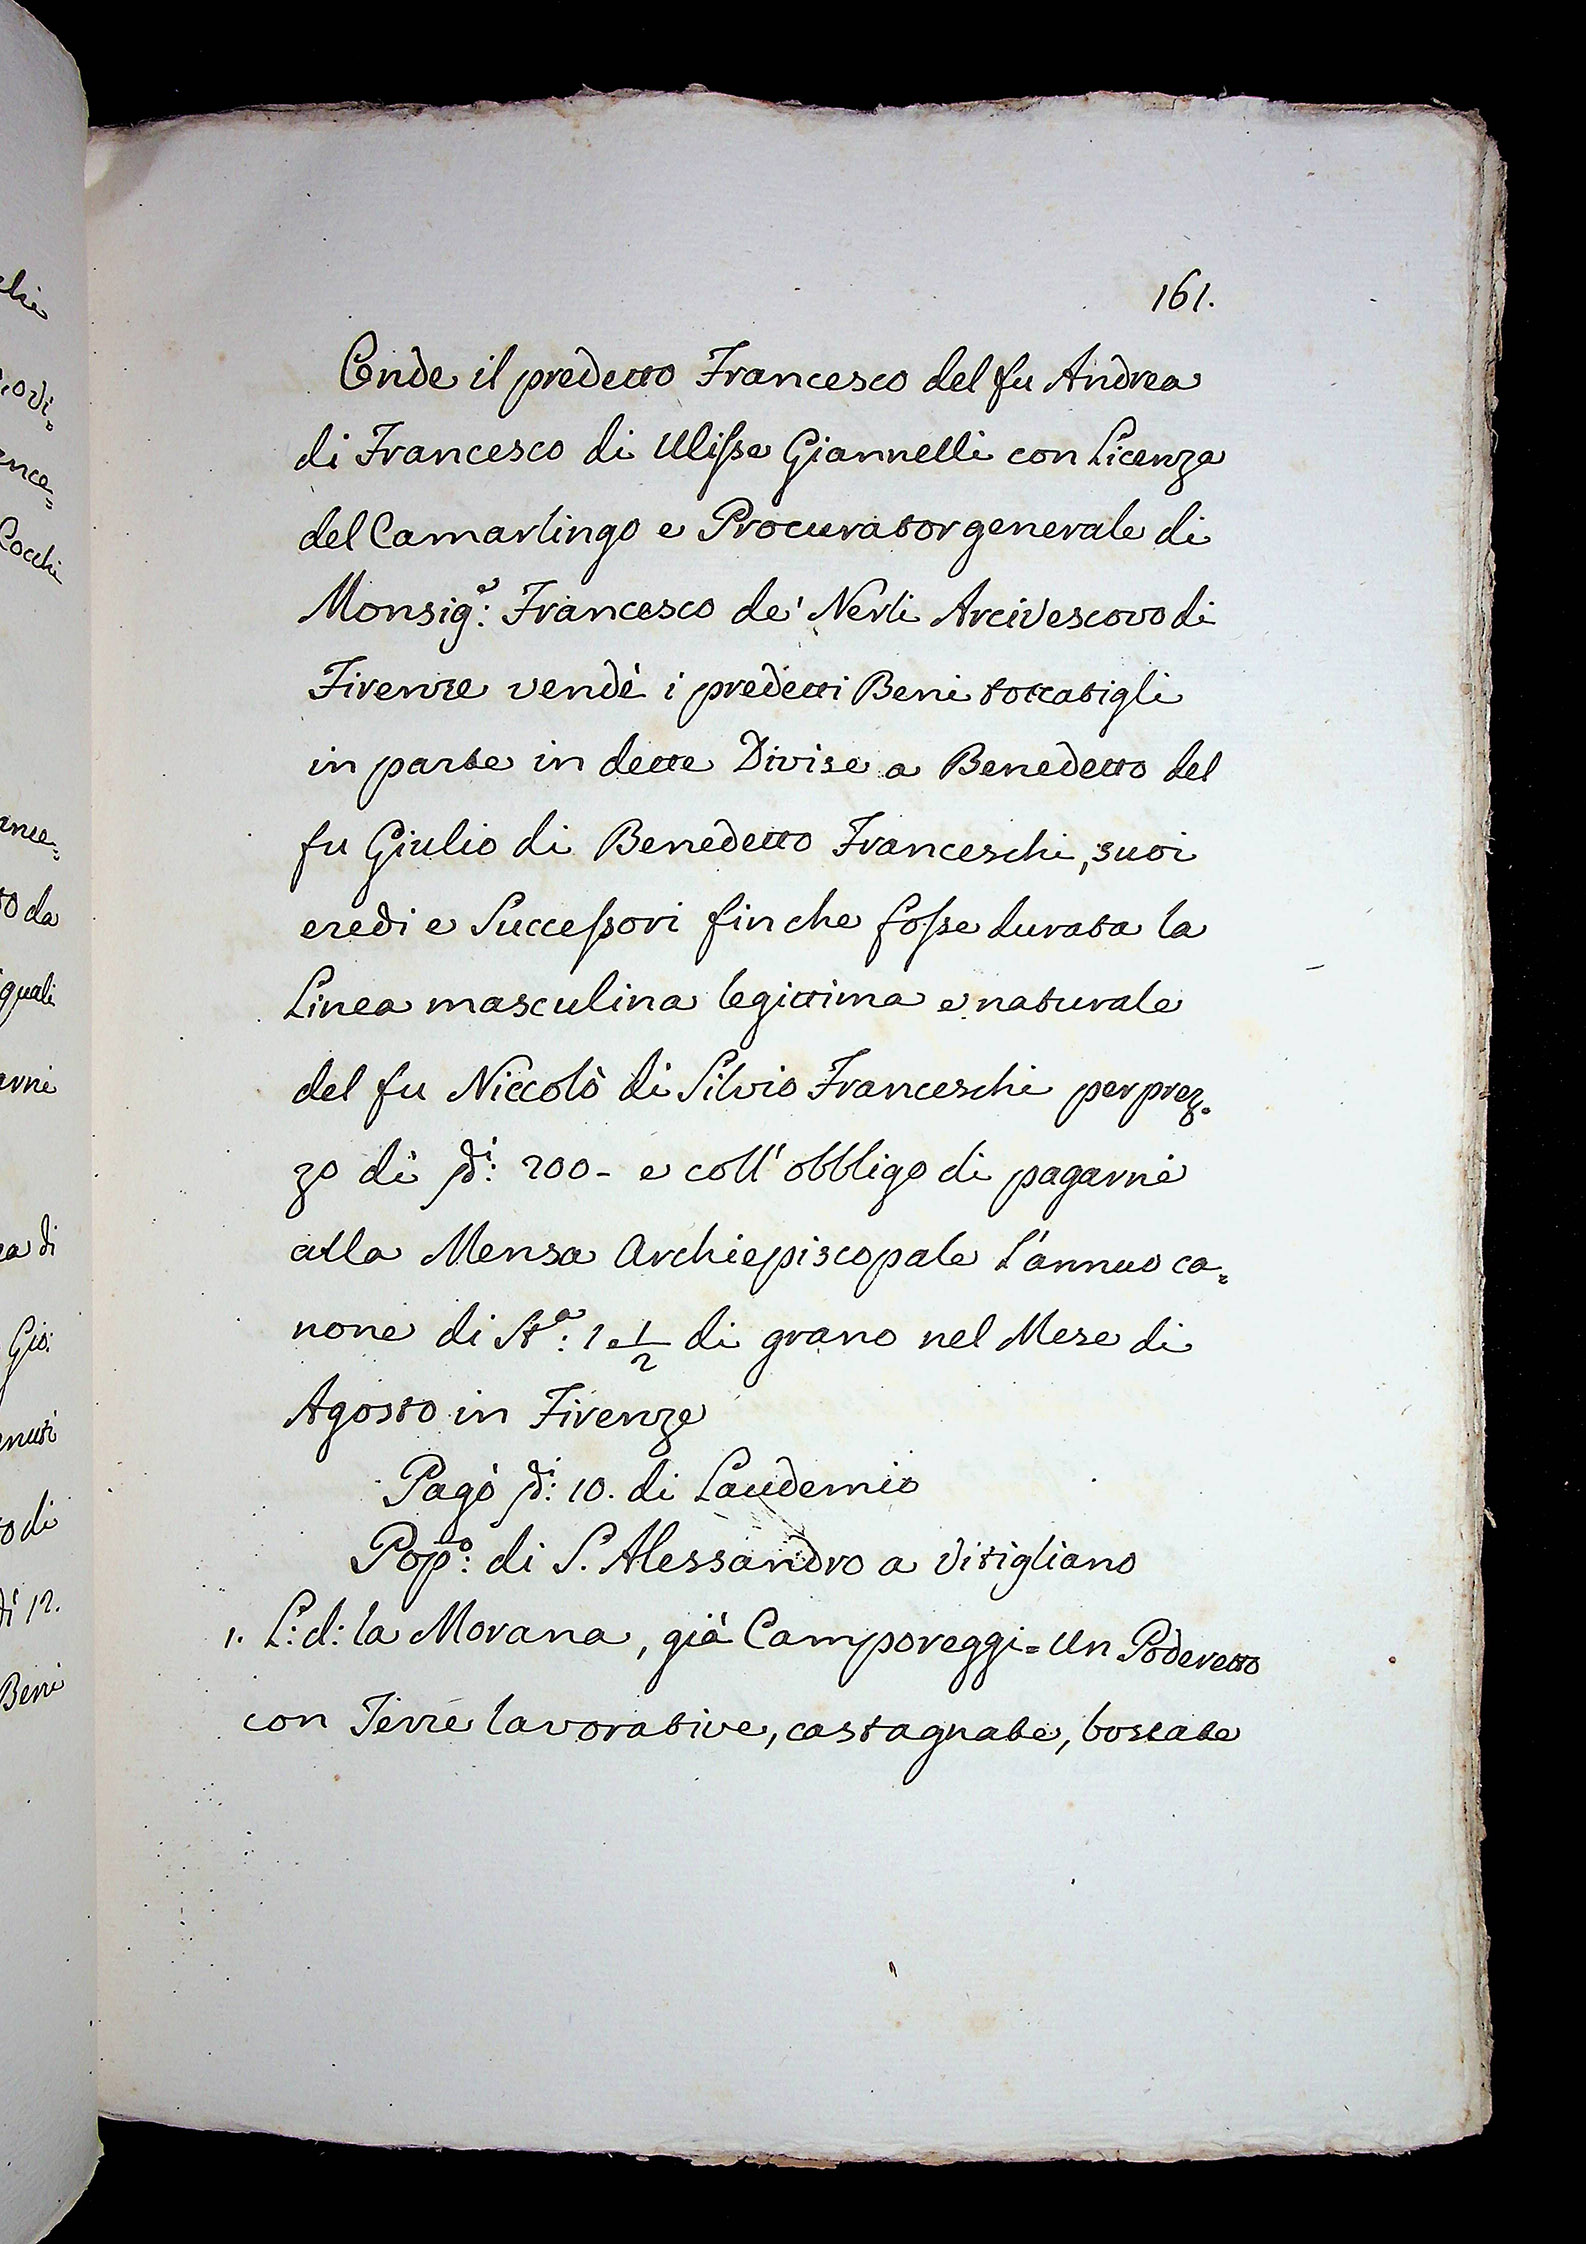 161.
Onde il predetto Francesco del fu Andrea
di Francesco di Ulisse Giannelli con Licenza
del Camarlingo e Procurator generale di
Monsig.e: Francesco de' Nerli Arcivescovo di
Firenze vendè i predetti Beni toccatigli
in parte in dette Divise a Benedetto del
fu Giulio di Benedetto Franceschi, suoi
eredi e Successori finche fosse durata la
Linea masculina legittima e naturale
del fu Niccolò di Silvio Franceschi per prez=
zo di 200- e coll' obbligo di pagarne
alla Mensa Archiepiscopale l'annuo ca=
none di Sta: 1 e 1/2 di grano nel Mese di
Agosto in Firenze
Pagò 10. di Laudemio
Popo: di S. Alessandro a Vitigliano
1. L: d: la Morana, già Camporeggi= Un Poderetto
con Terre lavorative, castagnate, boscate
to da
quali
Gio:
Beni